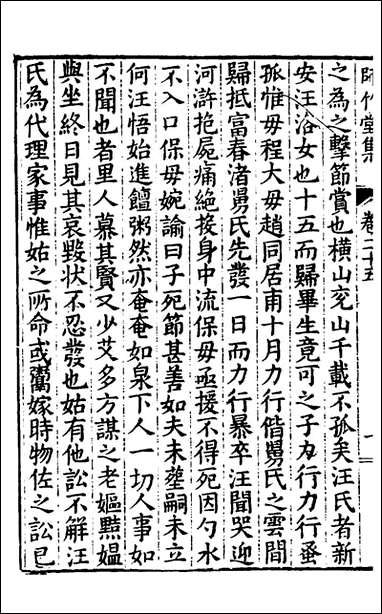 師竹堂集 卷二十五 一
之為之擊節賞也橫山兖山千載不孤矣汪氏者新
安汪洽女也十五而歸畢生竟可之子力行力行蚤
孤惟母程大母趙同居甫十月力行偕舅氏之雲間
歸抵富春渚舅氏先發一日而力行暴卒汪聞哭迎
河滸抱屍痛絕投身中流保母亟援不得死因勺水
不入口保母婉諭曰子死節甚善如夫未塟嗣未立
何汪悟始進饘粥然亦奄奄如泉下人一切人事如
不聞也者里人慕其賢又少艾多方謀之老嫗黠媼
與坐終日見其哀毀狀不忍發也姑有他訟不解汪
氏為代理家事惟姑之所命或鬻嫁時物佐之訟已